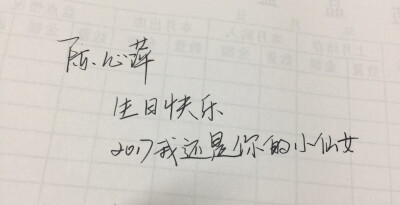 陈心萍
生日快乐
2017我还是你的小仙女